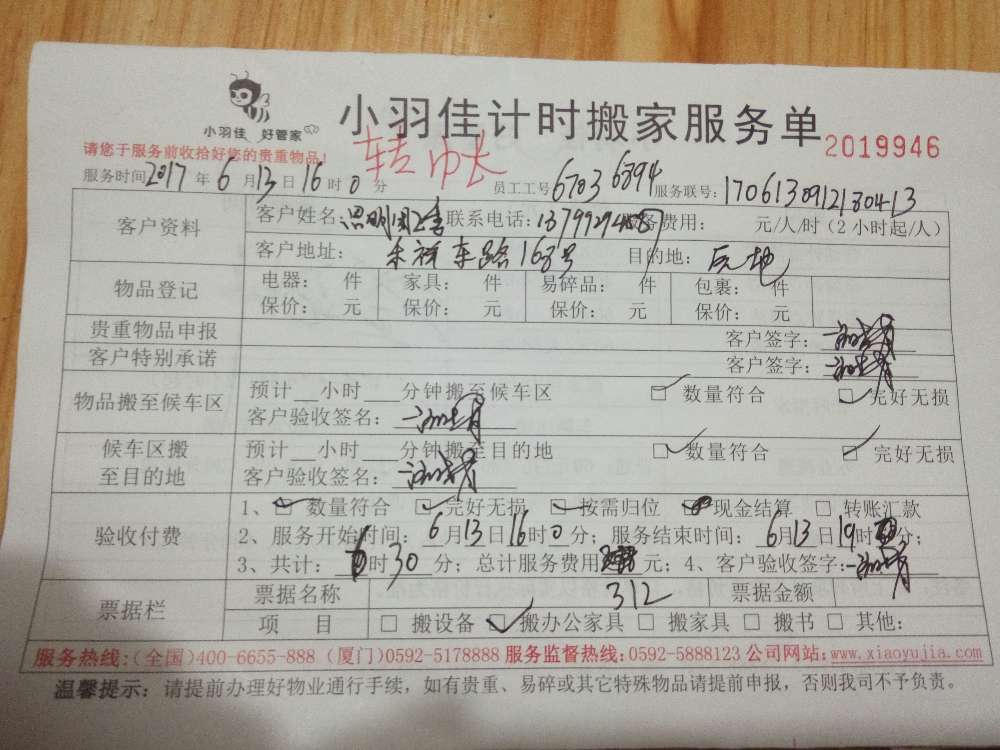 小羽佳 好管家
小羽佳计时搬家服务单
2019946
请您于服务前收拾好您的贵重物品!
转帐
服务时间2017年6月13日16时0分 员工工号6703 6894 服务联号:1706130912180413
客户资料
客户姓名: 联系电话: 服务费用: 元/人/时(2小时起/人)
客户地址: 车路168号 目的地:
物品登记
电器: 件 家具: 件 易碎品: 件 包裹: 件
保价: 元 保价: 元 保价: 元 保价: 元
贵重物品申报 客户签字:
客户特别承诺 客户签字:
物品搬至候车区
预计__小时___分钟搬至候车区 □ 数量符合 □ 完好无损
客户验收签名:
候车区搬至目的地
预计__小时___分钟搬至目的地 □ 数量符合 □ 完好无损
客户验收签名:
验收付费
1、□ 数量符合 □ 完好无损 □ 按需归位 □ 现金结算 □ 转账汇款
2、服务开始时间:6月13日16时0分;服务结束时间:6月13日19时分;
3、共计:时30分;总计服务费用元;4、客户验收签字:
312
票据栏
票据名称 票据金额
项 目 □ 搬设备 □ 搬办公家具 □ 搬家具 □ 搬书 □ 其他:
服务热线:(全国)400-6655-888 (厦门)0592-5178888 服务监督热线:0592-5888123 公司网站:www.xiaoyujia.com
温馨提示:请提前办理好物业通行手续,如有贵重、易碎或其它特殊物品请提前申报,否则我司不予负责。